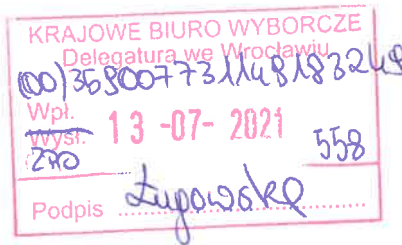 KRAJOWE BIURO WYBORCZE
Delegatura we Wrocławiu
(00)359007731149183249
Wpł.
Wysł. 13-07-2021
ZPO 558
Podpis ................